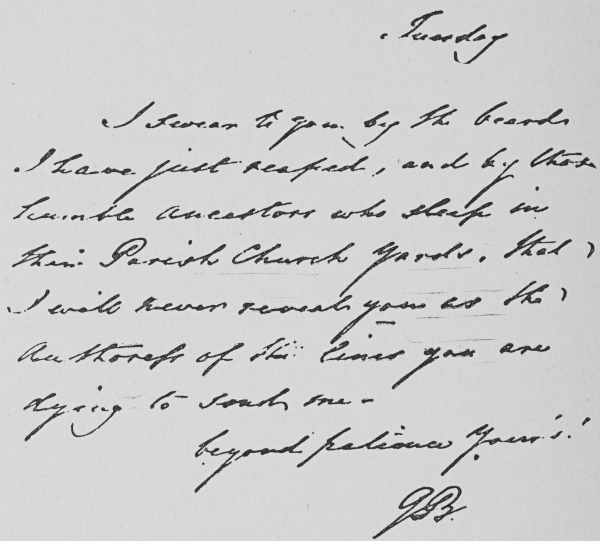 Tuesday
I swear to you, by the beards
I have just reaped, and by those
humble ancestors who sleep in
their Parish Church Yards, that
I will never reveal you as the
Authoress of the lines you are
dying to send me –
beyond patience Your's!
GB.